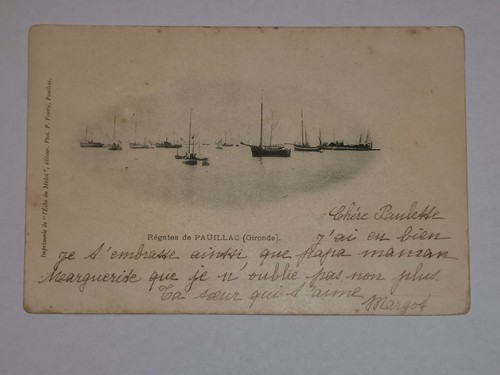 Imprimerie de "l'Echo du Médoc", éditeur. Phot. F. Pouey, Pauillac.
Régates de PAUILLAC (Gironde).
Chère Paulette
j'ai eu bien
je t'embrasse ainsi que papa maman
Marguerite que je n'oublie pas non plus.
Ta sœur qui t'aime
Margot